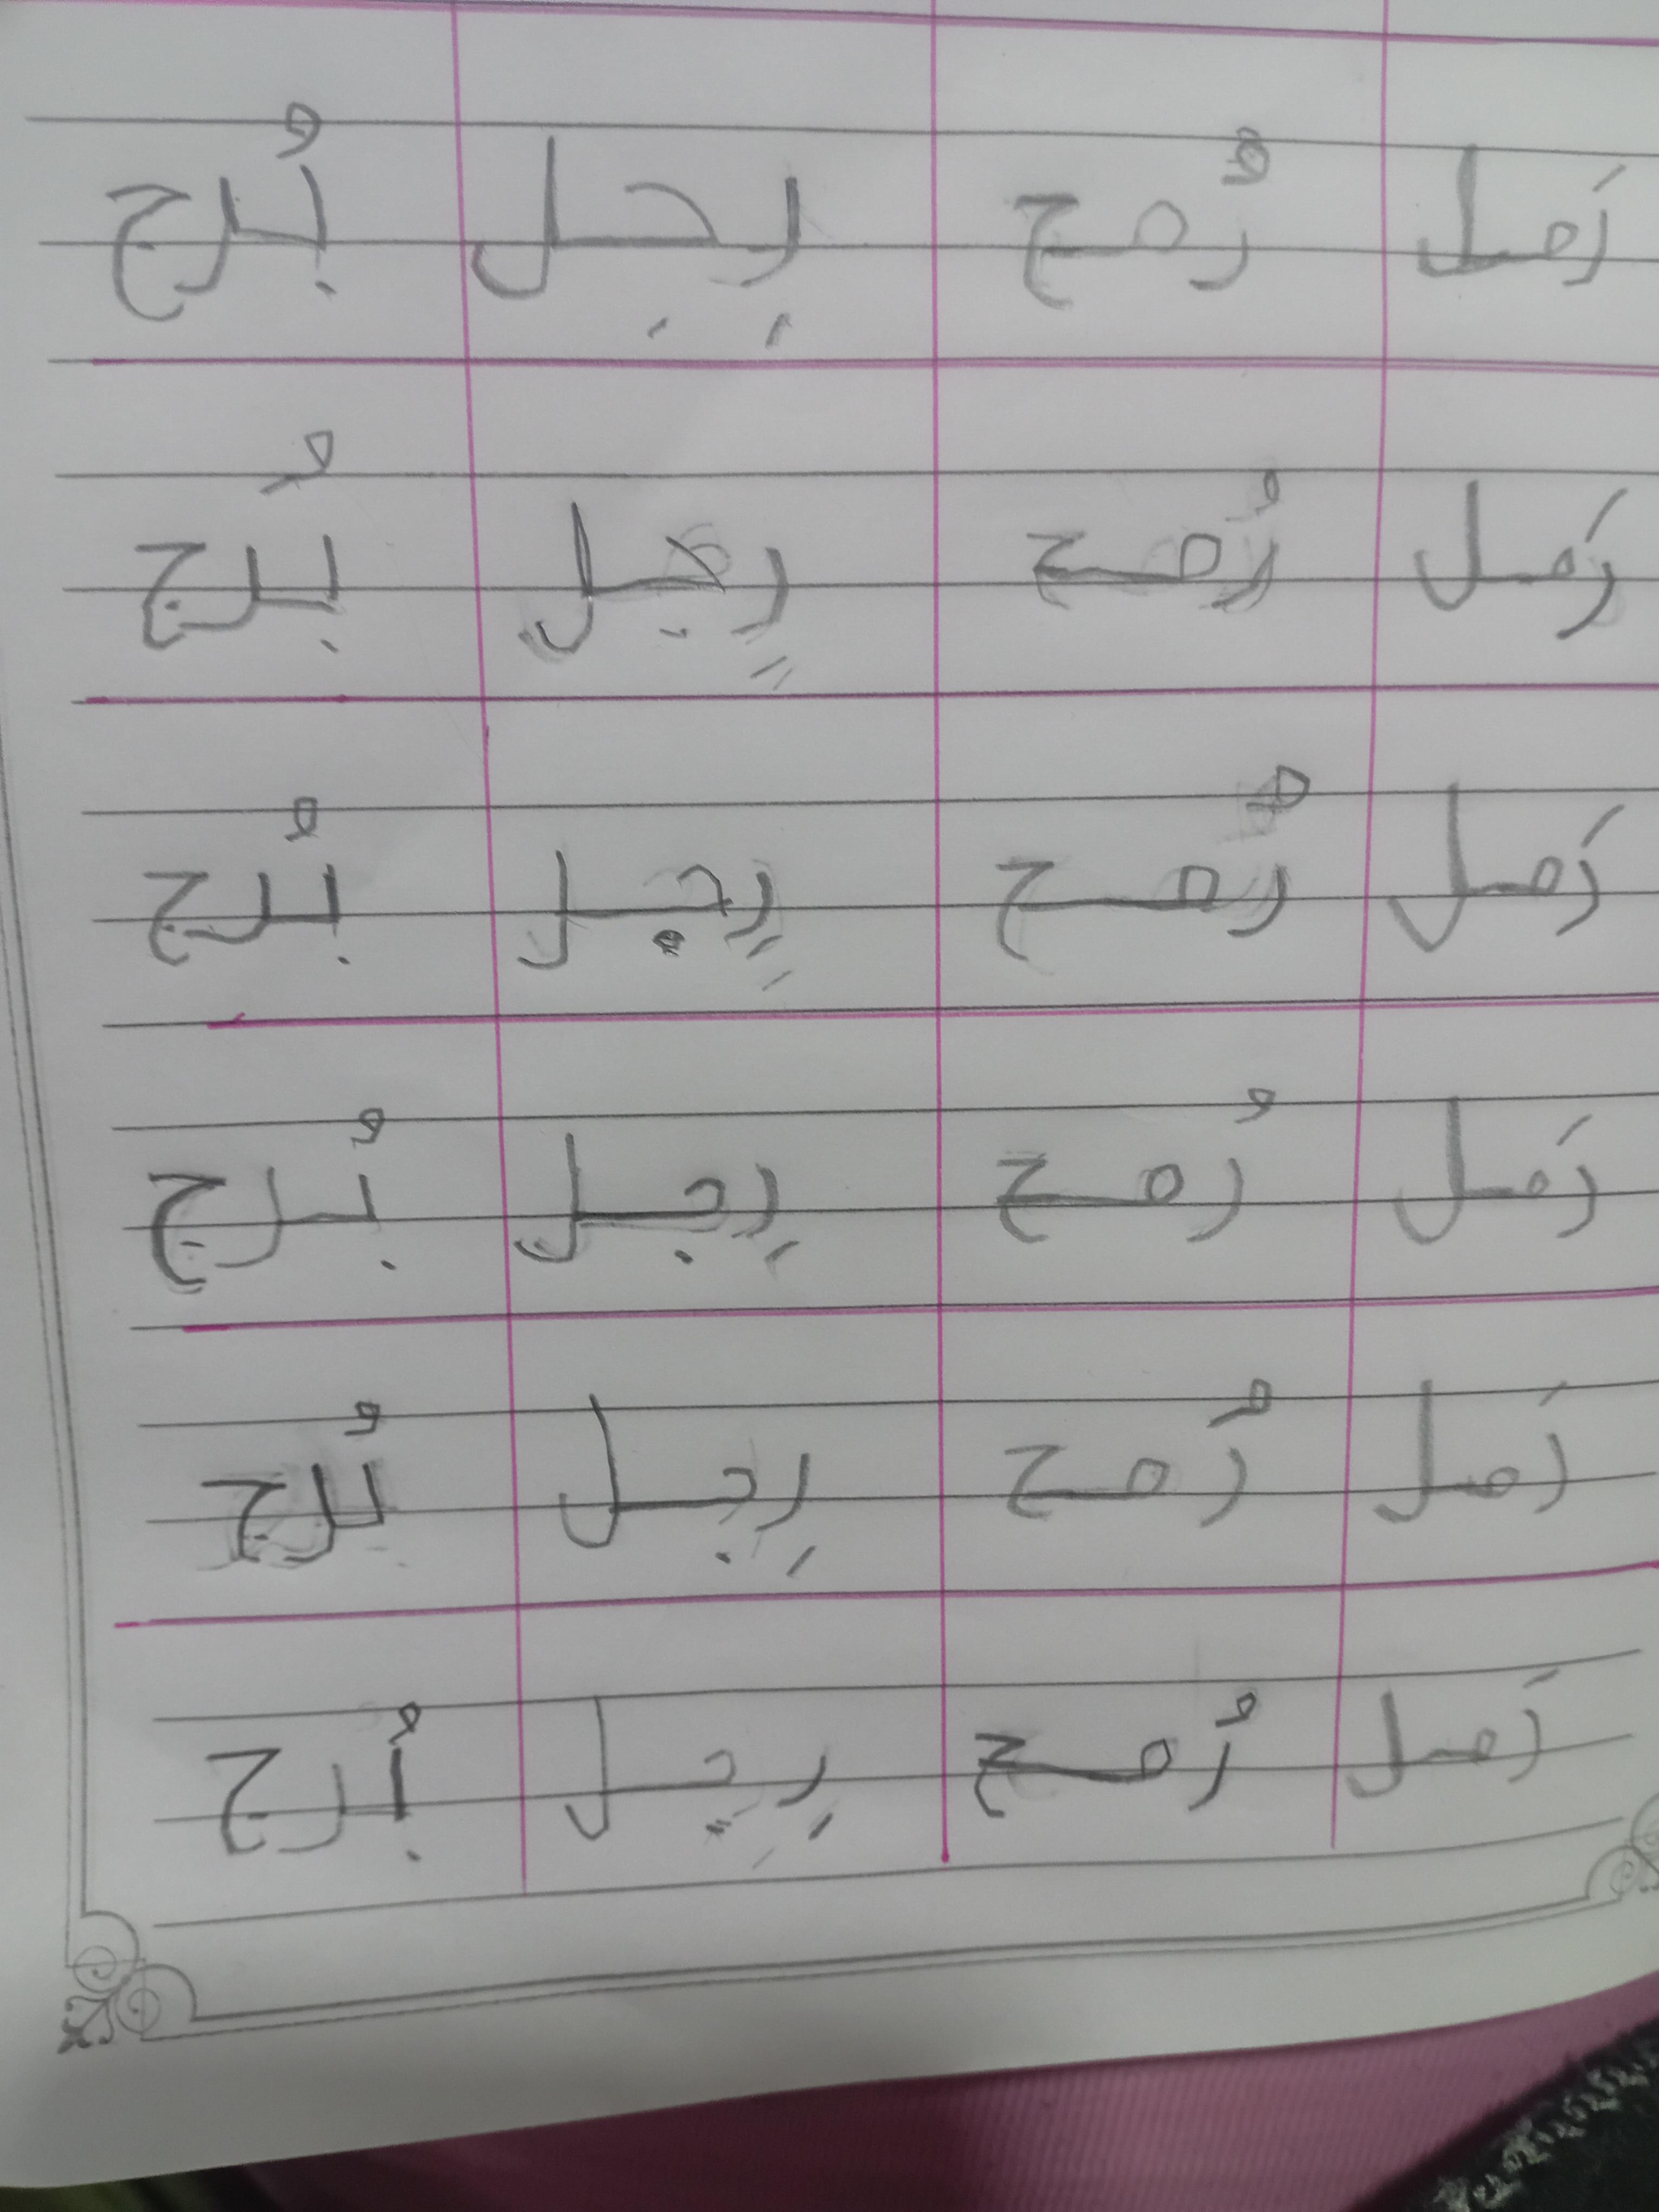 رَمل رُمح رِجل بُرج
رَمل رُمح رِجل بُرج
رَمل رُمح رِجل بُرج
رَمل رُمح رِجل بُرج
رَمل رُمح رِجل بُرج
رَمل رُمح رِجل بُرج